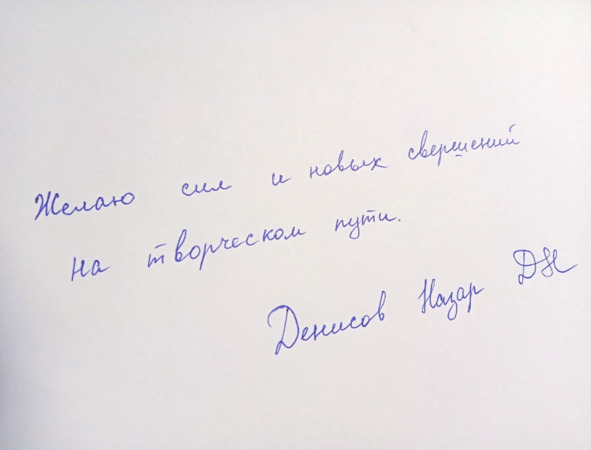 Желаю сил и новых свершений
на творческом пути.
Денисов Назар ДН